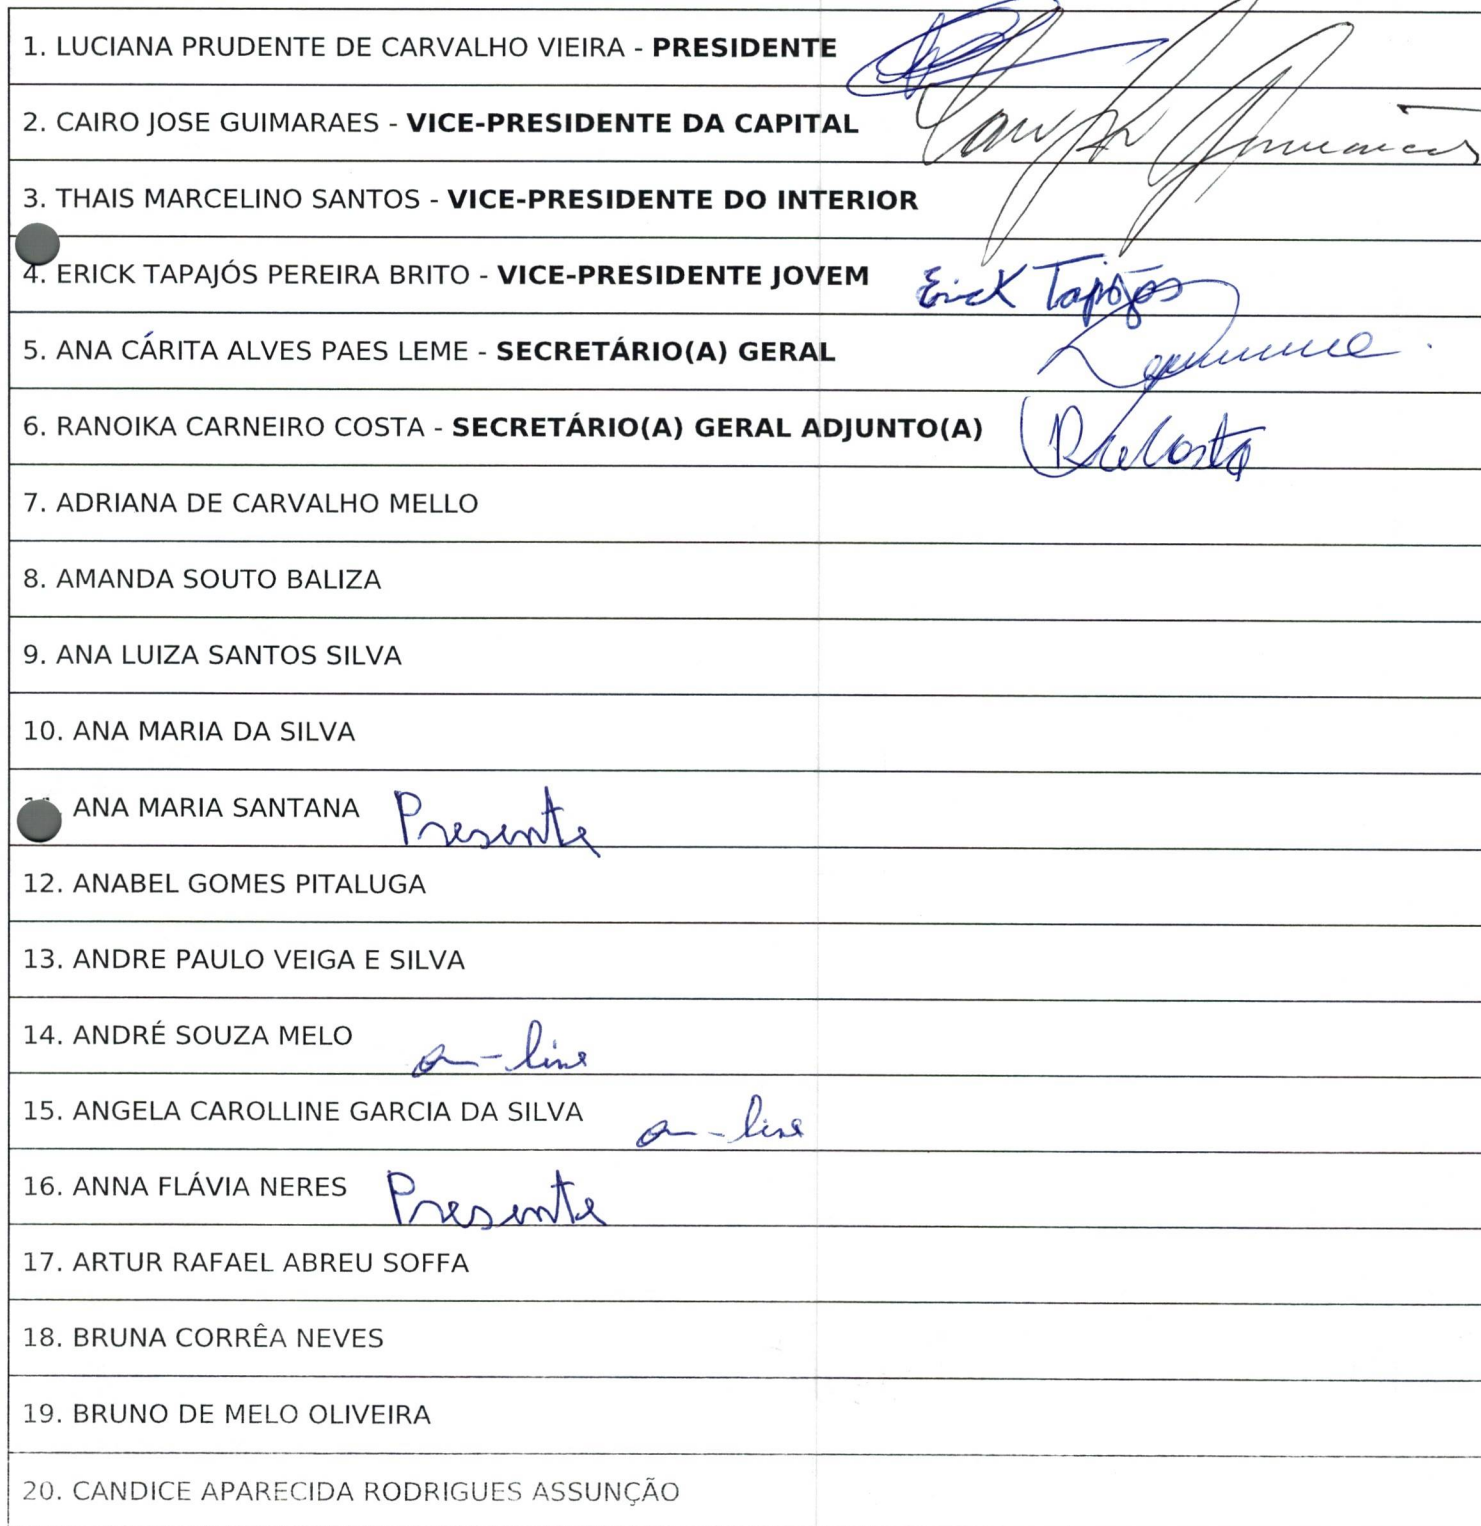 1. LUCIANA PRUDENTE DE CARVALHO VIEIRA - PRESIDENTE
2. CAIRO JOSE GUIMARAES - VICE-PRESIDENTE DA CAPITAL
3. THAIS MARCELINO SANTOS - VICE-PRESIDENTE DO INTERIOR
4. ERICK TAPAJÓS PEREIRA BRITO - VICE-PRESIDENTE JOVEM Erick Tapajós
5. ANA CÁRITA ALVES PAES LEME - SECRETÁRIO(A) GERAL
6. RANOIKA CARNEIRO COSTA - SECRETÁRIO(A) GERAL ADJUNTO(A)
7. ADRIANA DE CARVALHO MELLO
8. AMANDA SOUTO BALIZA
9. ANA LUIZA SANTOS SILVA
10. ANA MARIA DA SILVA
ANA MARIA SANTANA Presente
12. ANABEL GOMES PITALUGA
13. ANDRE PAULO VEIGA E SILVA
14. ANDRÉ SOUZA MELO on-line
15. ANGELA CAROLLINE GARCIA DA SILVA on-line
16. ANNA FLÁVIA NERES Presente
17. ARTUR RAFAEL ABREU SOFFA
18. BRUNA CORRÊA NEVES
19. BRUNO DE MELO OLIVEIRA
20. CANDICE APARECIDA RODRIGUES ASSUNÇÃO